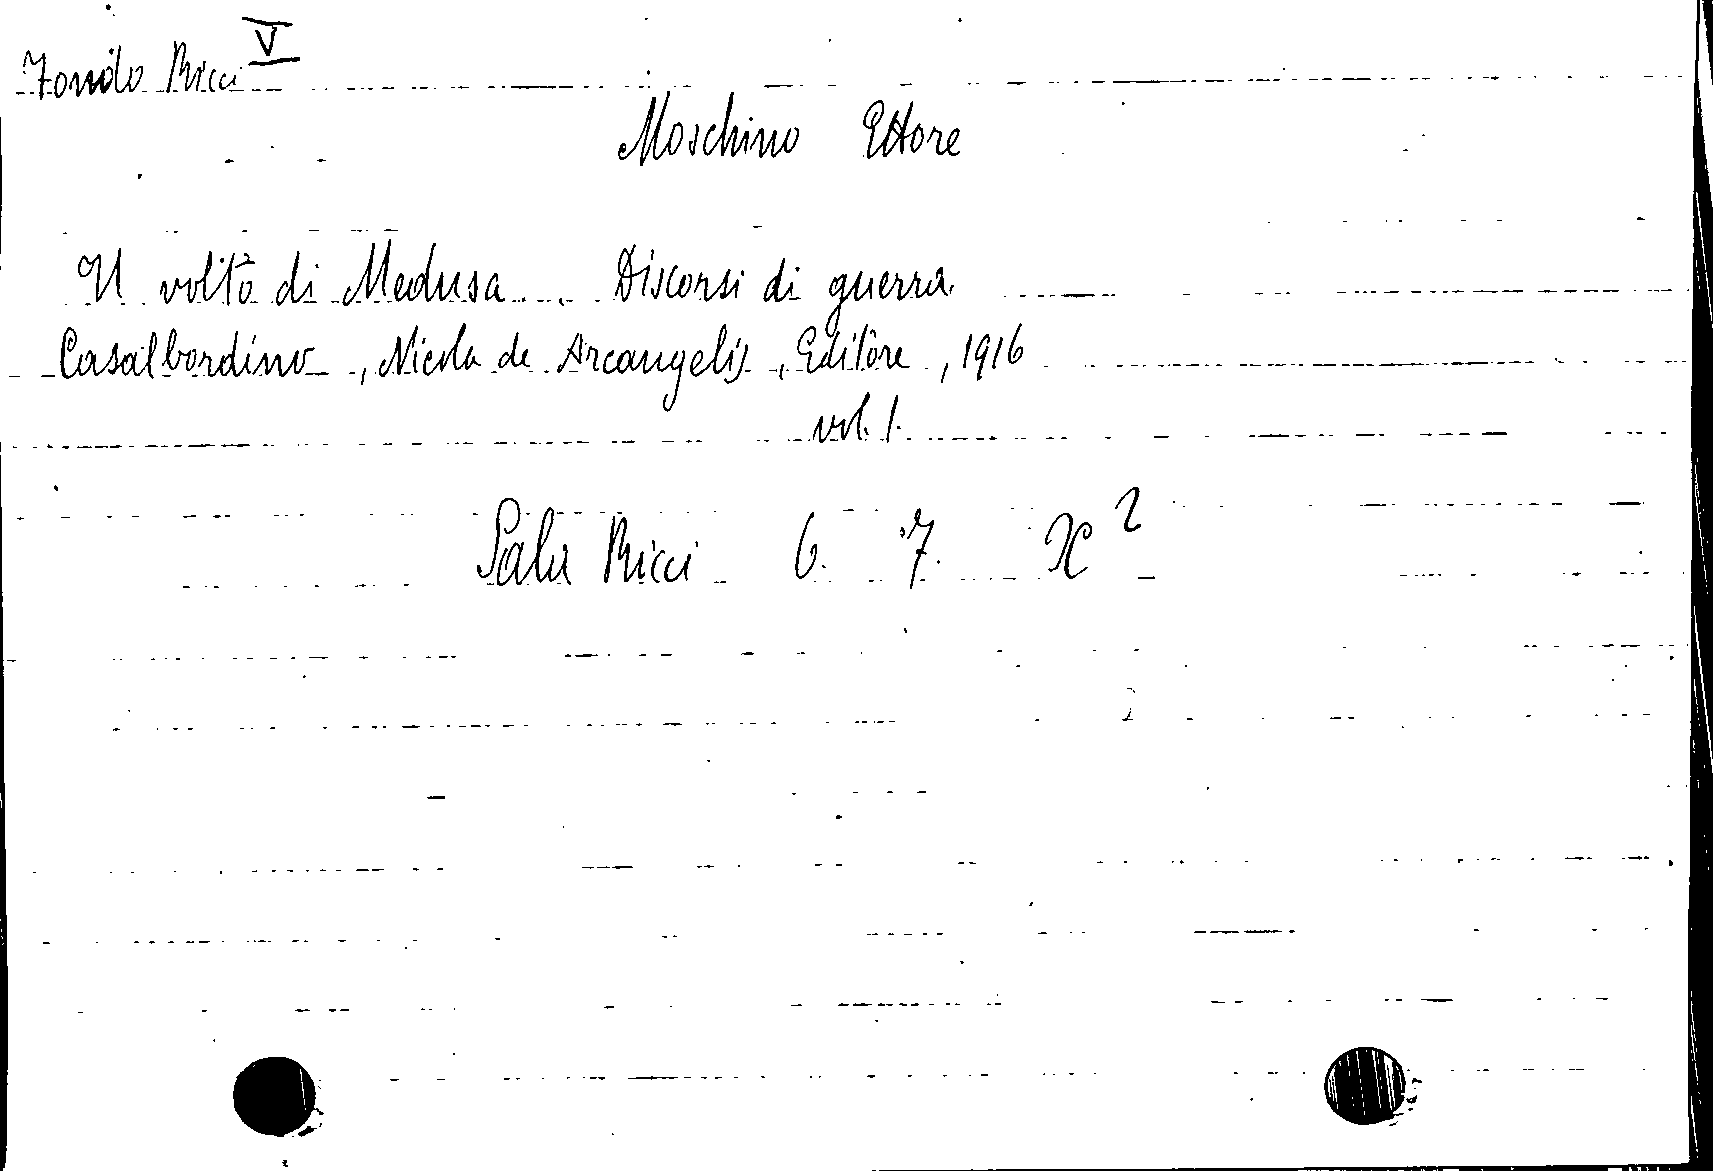 Fondo Ricci V
Moschino Ettore
Il volto di Medusa. Discorsi di guerra.
Casalbordino, Nicola de Arcangelis, Editore, 1916
vol. 1.
Sala Ricci 6. 7. X 2